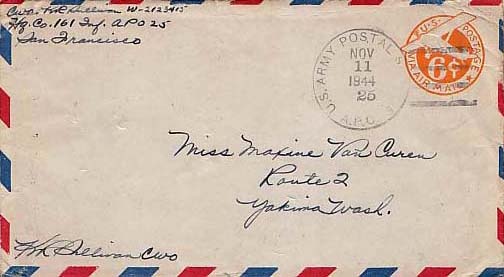 Cwo. HK Sullivan W-2123415
Hq Co. 161 Inf. APO 25
San Francisco
U.S. ARMY POSTAL S
NOV
11
1944
25
A.P.O.
U.S. POSTAGE
6¢
VIA AIR MAIL
Miss Maxine Van Curen
Route 2
Yakima Wash.
HK Sullivan CWO